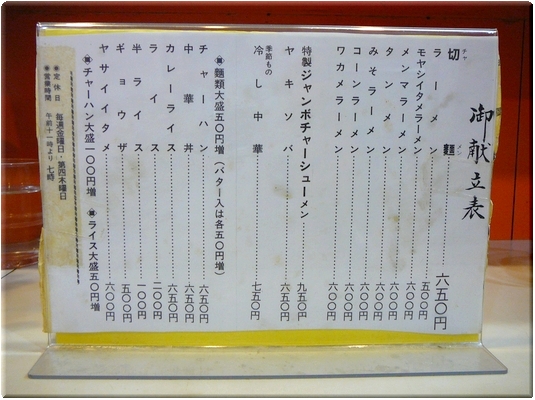 御献立表
切麵 チャーメン 六五〇円
ラーメン 五〇〇円
モヤシイタメラーメン 六〇〇円
メンマラーメン 六〇〇円
タンメン 六〇〇円
みそラーメン 六〇〇円
コーンラーメン 六〇〇円
ワカメラーメン 六〇〇円
特製ジャンボチャーシューメン 九五〇円
ヤキソバ 六五〇円
季節もの
冷し中華 七五〇円
麵類大盛五〇円増(バター入は各五〇円増)
チャーハン 六五〇円
中華丼 六五〇円
カレーライス 六五〇円
ライス 二〇〇円
半ライス 一〇〇円
ギョウザ 五〇〇円
ヤサイイタメ 六〇〇円
チャーハン大盛一〇〇円増 ライス大盛五〇円増
定休日 毎週金曜日・第四木曜日
営業時間 午前十一時より七時